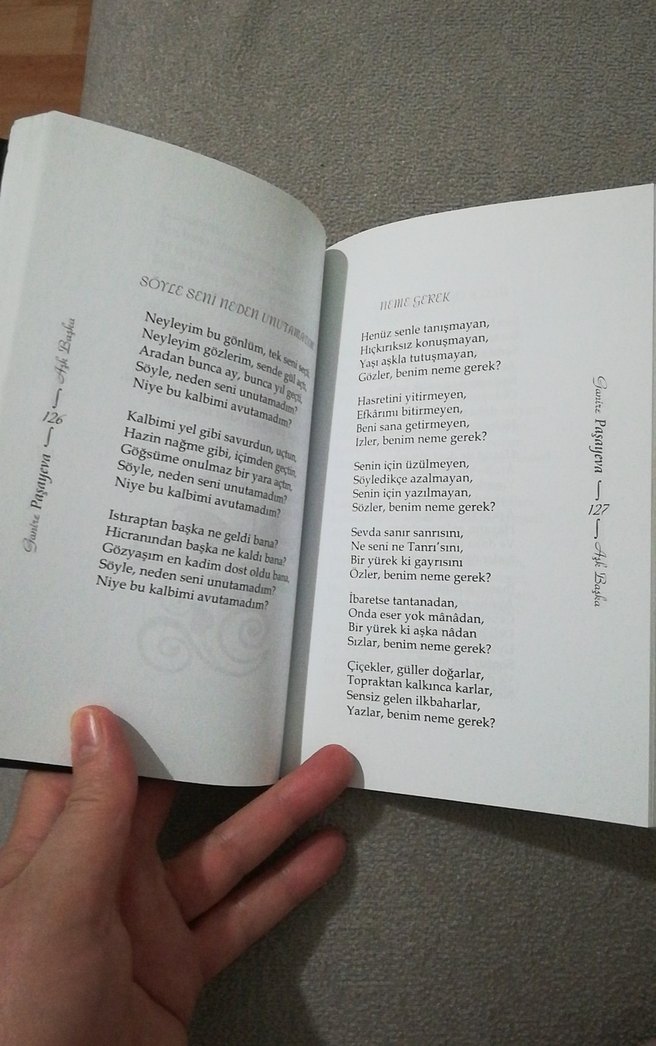 SÖYLE SENİ NEDEN UNUTAMADIM
Neyleyim bu gönlüm, tek seni seçti,
Neyleyim gözlerim, sende gül açtı,
Aradan bunca ay, bunca yıl geçti,
Söyle, neden seni unutamadım?
Niye bu kalbimi avutamadım?
Kalbimi yel gibi savurdun, uçtun,
Hazin nağme gibi, içimden geçtin,
Göğsüme onulmaz bir yara açtın,
Söyle, neden seni unutamadım?
Niye bu kalbimi avutamadım?
Istıraptan başka ne geldi bana?
Hicranından başka ne kaldı bana?
Gözyaşım en kadim dost oldu bana,
Söyle, neden seni unutamadım?
Niye bu kalbimi avutamadım?
Ganire Paşayeva
126
Aşk Başka
NEME GEREK
Henüz senle tanışmayan,
Hıçkırıksız konuşmayan,
Yaşı aşkla tutuşmayan,
Gözler, benim neme gerek?
Hasretini yitirmeyen,
Efkârımı bitirmeyen,
Beni sana getirmeyen,
İzler, benim neme gerek?
Senin için üzülmeyen,
Söyledikçe azalmayan,
Senin için yazılmayan,
Sözler, benim neme gerek?
Sevda sanır sanrısını,
Ne seni ne Tanrı'sını,
Bir yürek ki gayrısını
Özler, benim neme gerek?
İbaretse tantanadan,
Onda eser yok mânâdan,
Bir yürek ki aşka nâdan
Sızlar, benim neme gerek?
Çiçekler, güller doğarlar,
Topraktan kalkınca karlar,
Sensiz gelen ilkbaharlar,
Yazlar, benim neme gerek?
Ganire Paşayeva
127
Aşk Başka